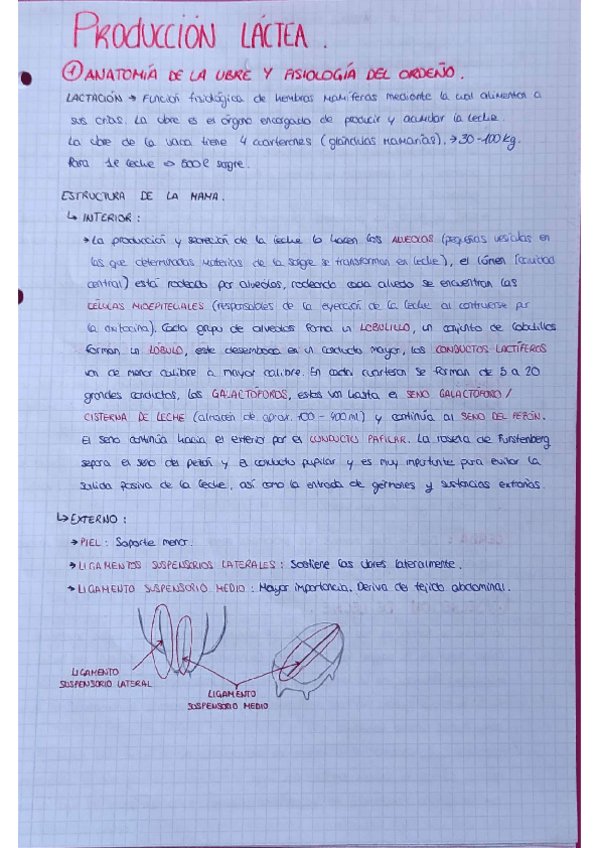 PRODUCCIÓN LÁCTEA.
① ANATOMÍA DE LA UBRE Y FISIOLOGÍA DEL ORDEÑO.
LACTACIÓN → Función fisiológica de hembras mamíferas mediante la cual alimentan a
sus crías. La ubre es el órgano encargado de producir y acumular la leche.
La ubre de la vaca tiene 4 cuarterones (glándulas mamarias). → 30-100kg.
Para 1l leche ⇒ 500l sangre.
ESTRUCTURA DE LA MAMA.
↳ INTERIOR:
→ La producción y secreción de la leche lo hacen los ALVEOLOS (pequeñas vesículas en
las que determinadas materias de la sangre se transforman en leche), el lúmen (cavidad
central) está rodeado por alveolos, rodeando cada alveolo se encuentran las
CÉLULAS MIOEPITELIALES (responsables de la eyección de la leche al contraerse por
la oxitocina). Cada grupo de alveolos forma un LOBULILLO, un conjunto de lobulillos
forman un LÓBULO, este desemboca en un conducto mayor, los CONDUCTOS LACTÍFEROS
van de menor calibre a mayor calibre. En cada cuarterón se forman de 5 a 20
grandes conductos, los GALACTÓFOROS, estos van hasta el SENO GALACTÓFORO /
CISTERNA DE LECHE (almacén de aprox. 100 - 400 ml) y continúa al SENO DEL PEZÓN.
El seno continúa hacia el exterior por el CONDUCTO PAPILAR. La roseta de Furstenberg
separa el seno del pezón y el conducto papilar y es muy importante para evitar la
salida pasiva de la leche, así como la entrada de gérmenes y sustancias extrañas.
↳ EXTERNO:
→ PIEL: Soporte menor.
→ LIGAMENTOS SUSPENSORIOS LATERALES: Sostiene las ubres lateralmente.
→ LIGAMENTO SUSPENSORIO MEDIO: Mayor importancia. Deriva del tejido abdominal.
LIGAMENTO
SUSPENSORIO LATERAL
LIGAMENTO
SUSPENSORIO MEDIO